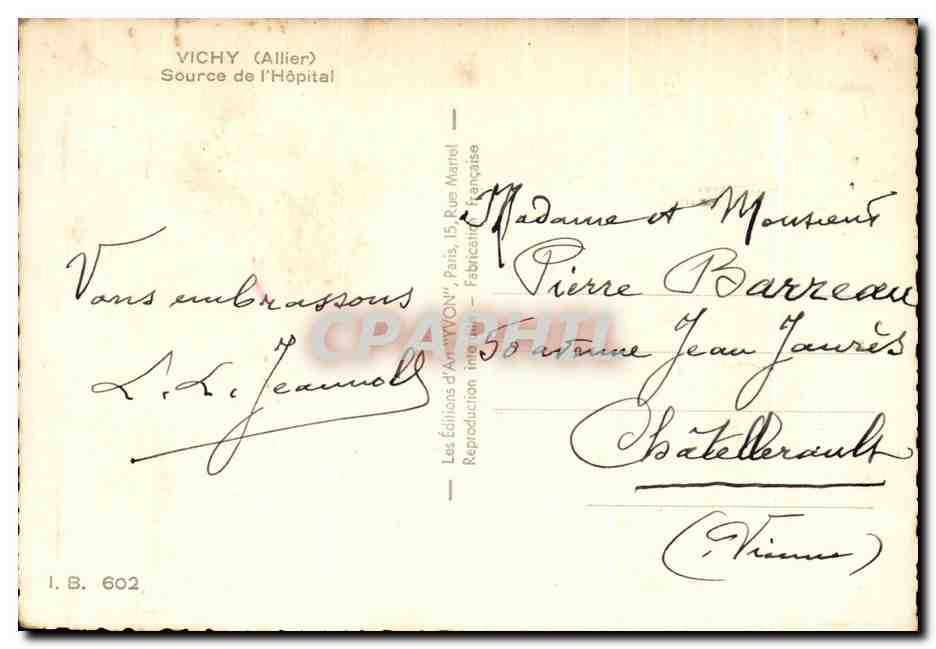 VICHY (Allier)
Source de l'Hôpital
Vous embrassons
L. L. Jeannot
I. B. 602
Les Éditions d'Art "YVON", Paris, 15, Rue Martel
Reproduction interdite - Fabrication Française
CPAPHIL
Madame et Monsieur
Pierre Barreau
50 avenue Jean Jaurès
Châtellerault
(Vienne)